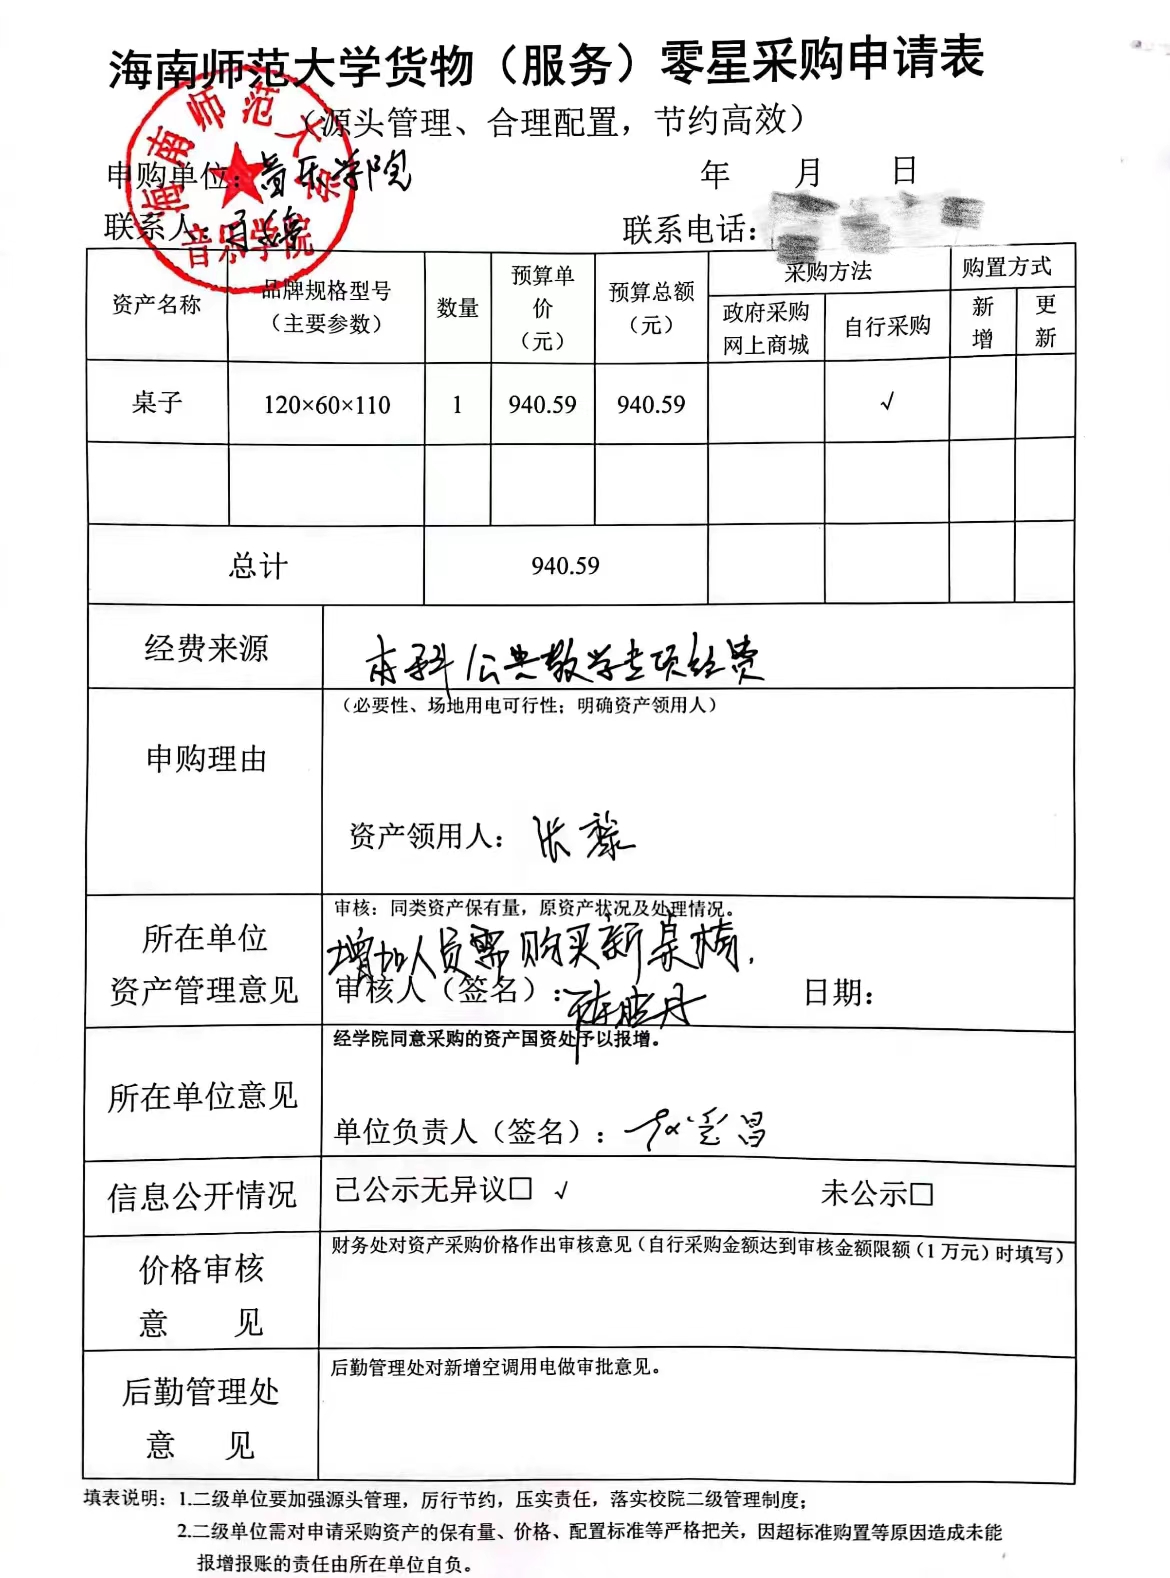 海南师范大学货物（服务）零星采购申请表
（源头管理、合理配置，节约高效）
申购单位：音乐学院 年 月 日
联系人： 联系电话：
海南师范大学
音乐学院
资产名称 品牌规格型号（主要参数） 数量 预算单价（元） 预算总额（元） 采购方法 购置方式
政府采购网上商城 自行采购 新增 更新
桌子 120×60×110 1 940.59 940.59 √
总计 940.59
经费来源 本科公共教学专项经费
申购理由 （必要性、场地用电可行性；明确资产领用人）
资产领用人：张
所在单位资产管理意见 审核：同类资产保有量，原资产状况及处理情况。
增加人员需购买新桌椅.
审核人（签名）： 日期：
所在单位意见 经学院同意采购的资产国资处予以报增。
单位负责人（签名）：
信息公开情况 已公示无异议□ √ 未公示□
价格审核意 见 财务处对资产采购价格作出审核意见（自行采购金额达到审核金额限额（1万元）时填写）
后勤管理处意 见 后勤管理处对新增空调用电做审批意见。
填表说明：1.二级单位要加强源头管理，厉行节约，压实责任，落实校院二级管理制度；
2.二级单位需对申请采购资产的保有量、价格、配置标准等严格把关，因超标准购置等原因造成未能
报增报账的责任由所在单位自负。